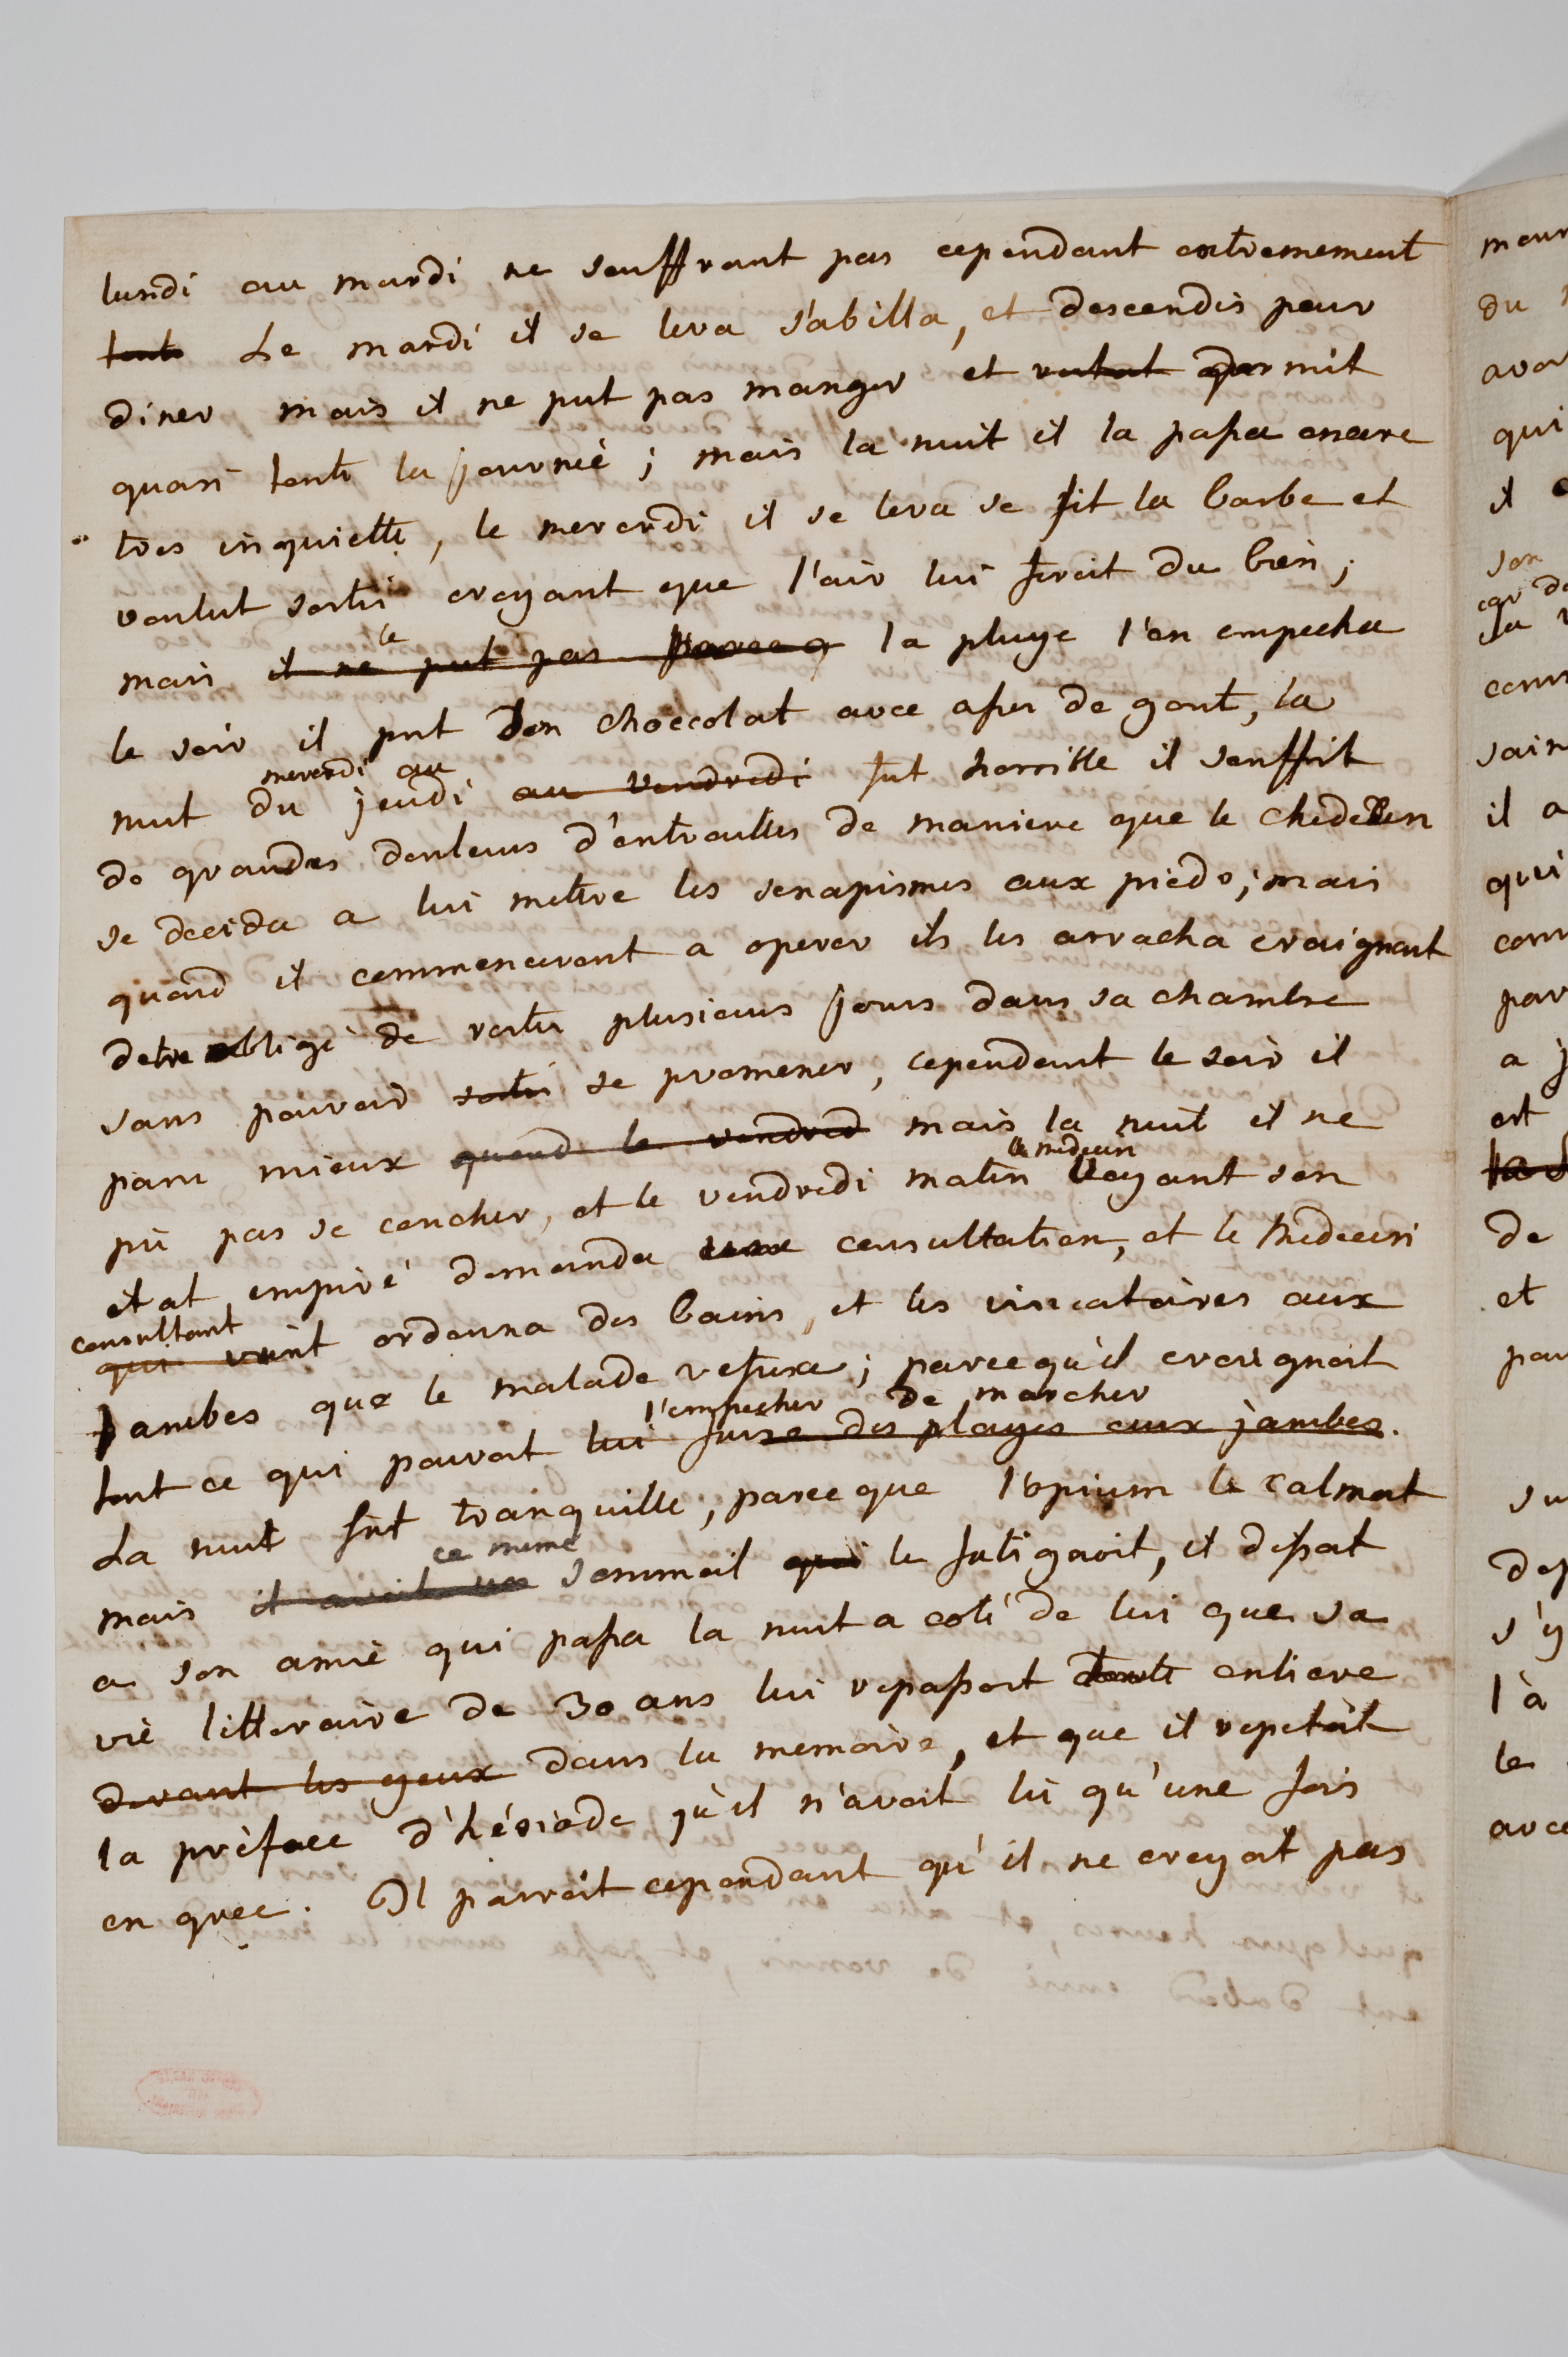 lundi au mardi ne souffrant pas cependant extremement
toute Le mardi il se leva s'abilla, et descendis pour
diner mais il ne put pas manger et dormit
quasi toute la journeè; mais la nuit il la passa encore
tres inquiette, le mercredi il se leva se fit la barbe et
voulut sortir croyant que l'air lui feroit du bien;
le
mais il ne put pas parceq la pluye l'en empecha
le soir il prit don choccolat avec asses de gout, la
mercredi au
nuit du jeudi au vendredi fut horrible il souffrit
de grandes douleurs d'entrailles de maniere que le
se decida a lui mettre les senapismes aux pieds; mais
quand il commencerent a operer ils les arracha craignant
detre obligé de rester plusieurs jours dans sa chambre
sans pouvoir sortir se promener, cependant le soir il
paru mieux quand le vendred mais la nuit il ne
le medecin
pû pas se coucher, et le vendredi matin voyant son
etat empiré demanda une consultation, et le medecin
consultant
qui vint ordonna des bains, et les viscatoires aux
jambes que le malade refusa; parcequ'il craignoit
l'empecher de marcher
tout ce qui pouvoit lui faire des playes aux jambes.
La nuit fut tranquille, parce que l'opium le calmat
ce meme
mais il avoit un sommeil qui le fatigaoit, il disoit
a son amie qui passa la nuit a coté de lui que sa
vie litteraire de 30 ans lui repassoit toute entiere
devant les yeux dans la memoire, et que il repetoit
la prèface d'hésiode qu'il n'avoit lu qu'une fois
en grec. Il paroit cependant qu'il ne croyoit pas
du
qui
il
son
il a
qui
par
a j
est
de
et
s'y
là
le
avec